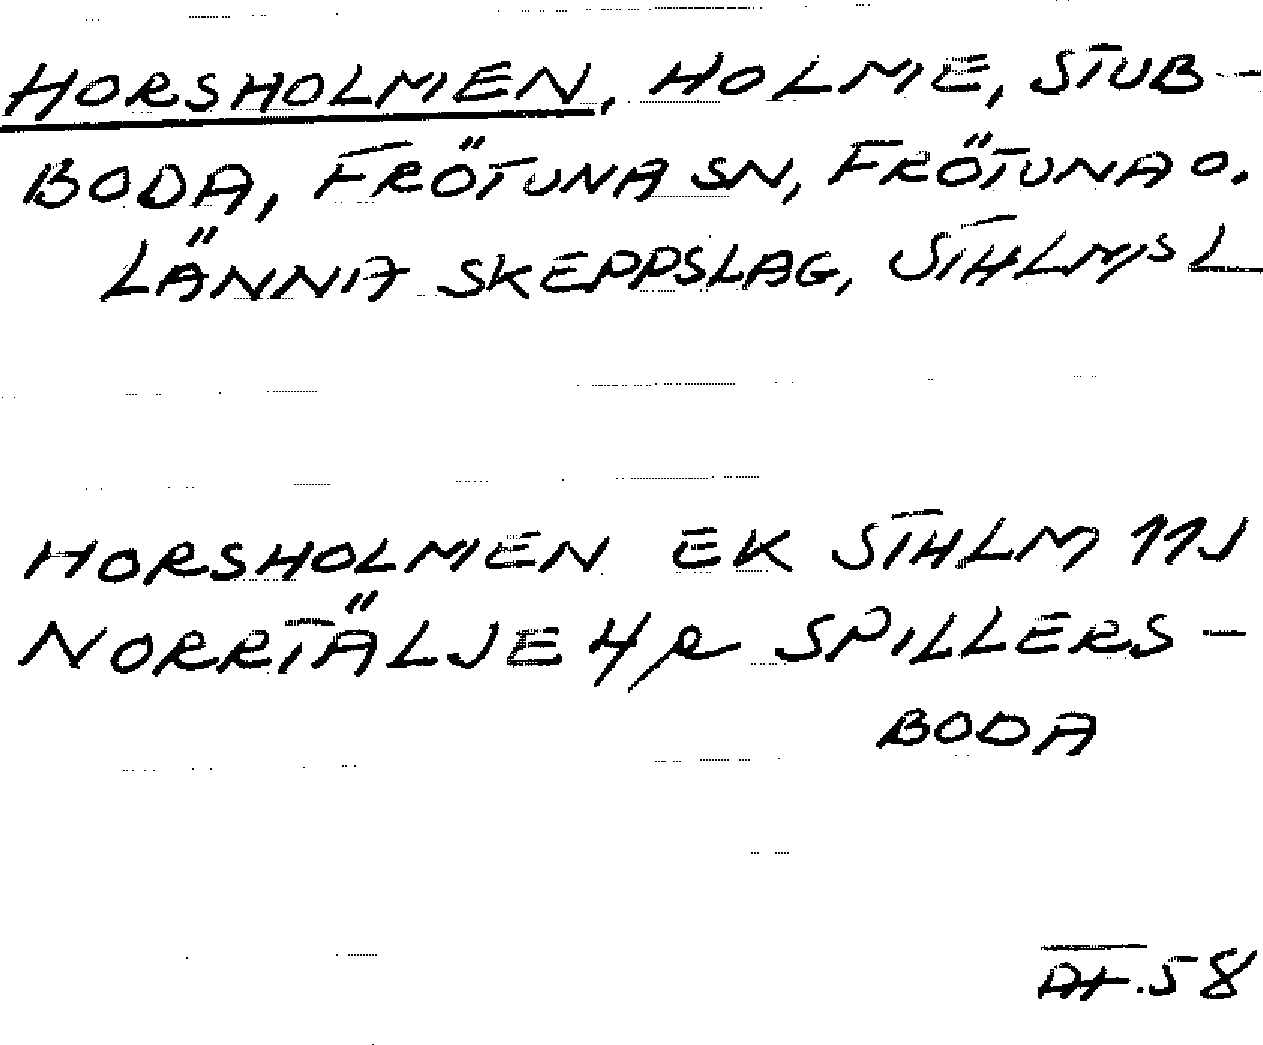 HORSHOLMEN, HOLME, STUB-
BODA, FRÖTUNA SN, FRÖTUNA O.
LÄNNA SKEPPSLAG, STHLMS L
HORSHOLMEN EK STHLM 11J
NORRTÄLJE 4 SPILLERS-
BODA
58